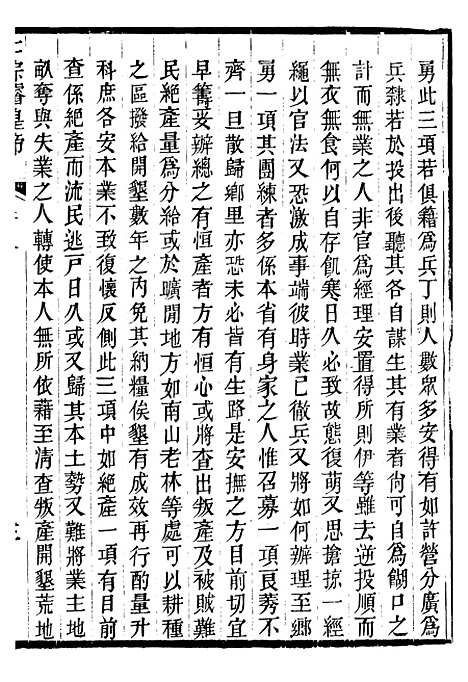 勇此三項若俱籍爲兵丁則人數眾多安得有如許營分廣爲
兵隸若於投出後聽其各自謀生其有業者尙可自爲餬口之
計而無業之人非官爲經理安置得所則伊等雖去逆投順而
無衣無食何以自存飢寒日久必致故態復萌又思搶掠一經
繩以官法又恐激成事端彼時業已徹兵又將如何辦理至鄉
勇一項其團練者多係本省有身家之人惟召募一項良莠不
齊一旦散歸鄉里亦恐未必皆有生路是安撫之方目前切宜
早籌妥辦總之有恒產者方有恒心或將查出叛產及被賊難
民絕產量爲分給或於曠閒地方如南山老林等處可以耕種
之區撥給開墾數年之內免其納糧俟墾有成效再行酌量升
科庶各安本業不致復懷反側此三項中如絕產一項有目前
查係絕產而流民逃戶日久或又歸其本土勢又難將業主地
畝奪與失業之人轉使本人無所依藉至清查叛產開墾荒地
仁宗睿皇帝